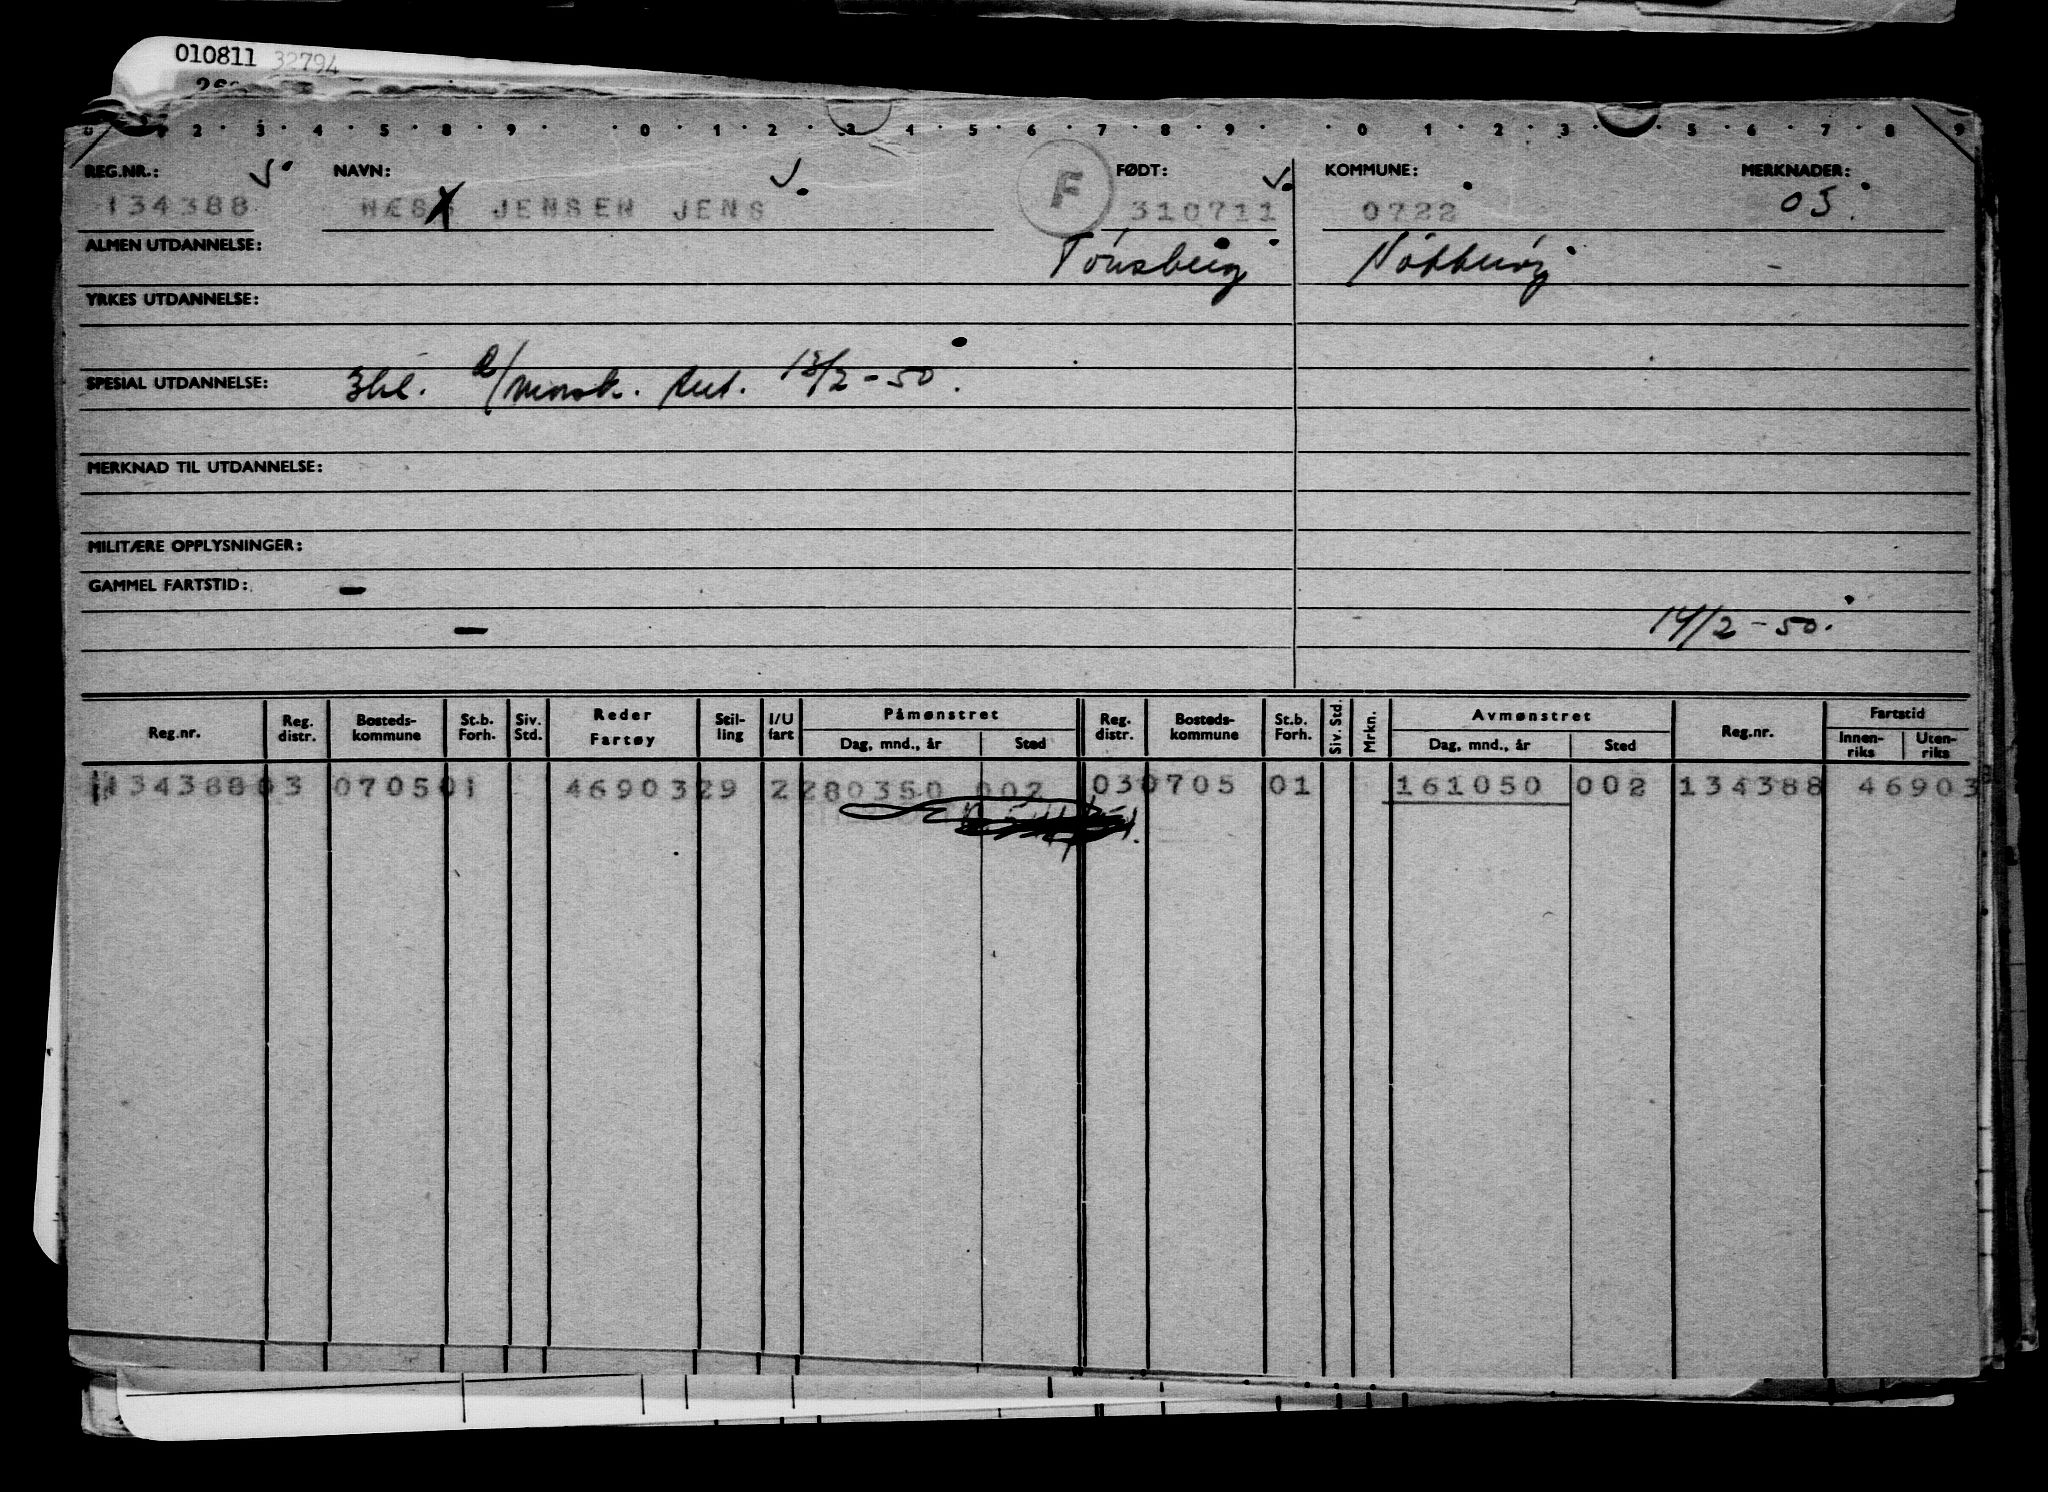 010811 32794
0 · 2 · 3 · 4 · 5 · 8 · 9 · · 0 · 1 · 2 · 3 · 4 · 5 · 6 · 7 · 8 · 9 · · 0 · 1 · 2 · 3 · 5 · 6 · 7 · 8 · 9
REG.NR.: NAVN: F FØDT: KOMMUNE: MERKNADER:
134388 NÆSS JENSEN JENS 310711 0722 05
ALMEN UTDANNELSE: Tønsberg Nøtterøy
YRKES UTDANNELSE:
SPESIAL UTDANNELSE: 13/2-50.
MERKNAD TIL UTDANNELSE:
MILITÆRE OPPLYSNINGER:
GAMMEL FARTSTID: -
- 14/2-50.
Reg.nr. Reg. distr. Bosteds-kommune St.b. Forh. Siv. Std. Reder Fartøy Stil-ling I/U fart Påmønstret Dag, mnd., år Sted Reg. distr. Bosteds-kommune St.b. Forh. Siv. Std. Mrkn. Avmønstret Dag, mnd., år Sted Reg.nr. Fartstid Innen-riks Uten-riks
134388 03 0705 01 46903 29 2 280350 002 03 0705 01 161050 002 134388 46903